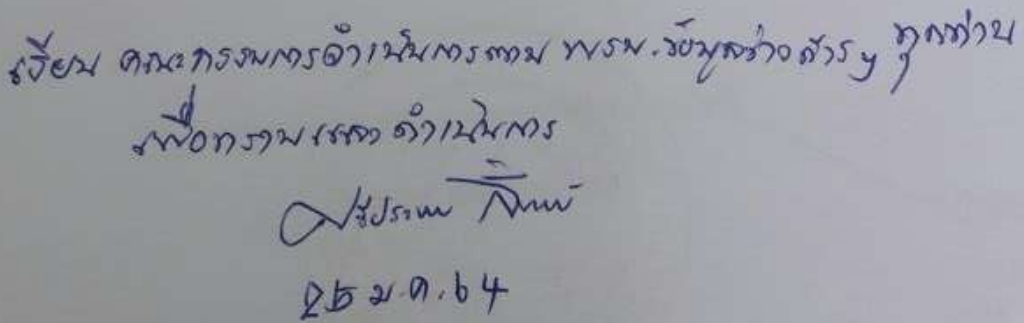 เรียน คณะกรรมการดำเนินการตาม พรบ.ข้อมูลข่าวสารฯ ทุกท่าน
เพื่อทราบและดำเนินการ
25 ม.ค.64